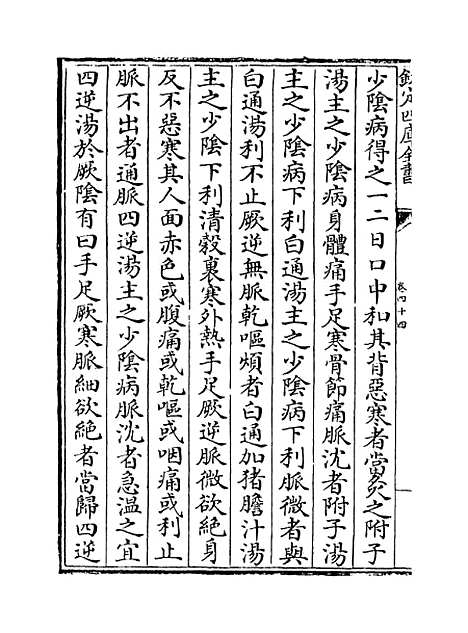 欽定四庫全書
卷四十四
少陰病得之一二日口中和其背惡寒者當灸之附子
湯主之少陰病身體痛手足寒骨節痛脈沈者附子湯
主之少陰病下利白通湯主之少陰病下利脈微者與
白通湯利不止厥逆無脈乾嘔煩者白通加猪膽汁湯
主之少陰下利清穀裏寒外熱手足厥逆脈微欲絶身
反不惡寒其人面赤色或腹痛或乾嘔或咽痛或利止
脈不出者通脈四逆湯主之少陰病脈沈者急溫之宜
四逆湯於厥陰有曰手足厥寒脈細欲絶者當歸四逆